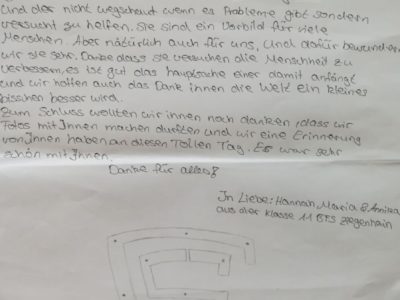 Und der nicht wegschaut wenn es Probleme gibt sondern
versucht zu helfen. Sie sind ein Vorbild für viele
Menschen. Aber natürlich auch für uns, und dafür bewundern
wir sie sehr. Danke dass sie versuchen die Menschheit zu
verbessern, es ist gut das hauptsache einer damit anfängt
und wir hoffen auch das Dank innen die Welt ein kleines
bisschen besser wird.
Zum Schluss wollten wir innen noch danken, dass wir
Fotos mit Innen machen durften und wir eine Erinnerung
von Innen haben an diesen Tollen Tag. Es war sehr
schön mit Innen.
Danke für alles!
In Liebe: Hannah, Maria & Annika
aus der Klasse 11 BFS Ziegenhain